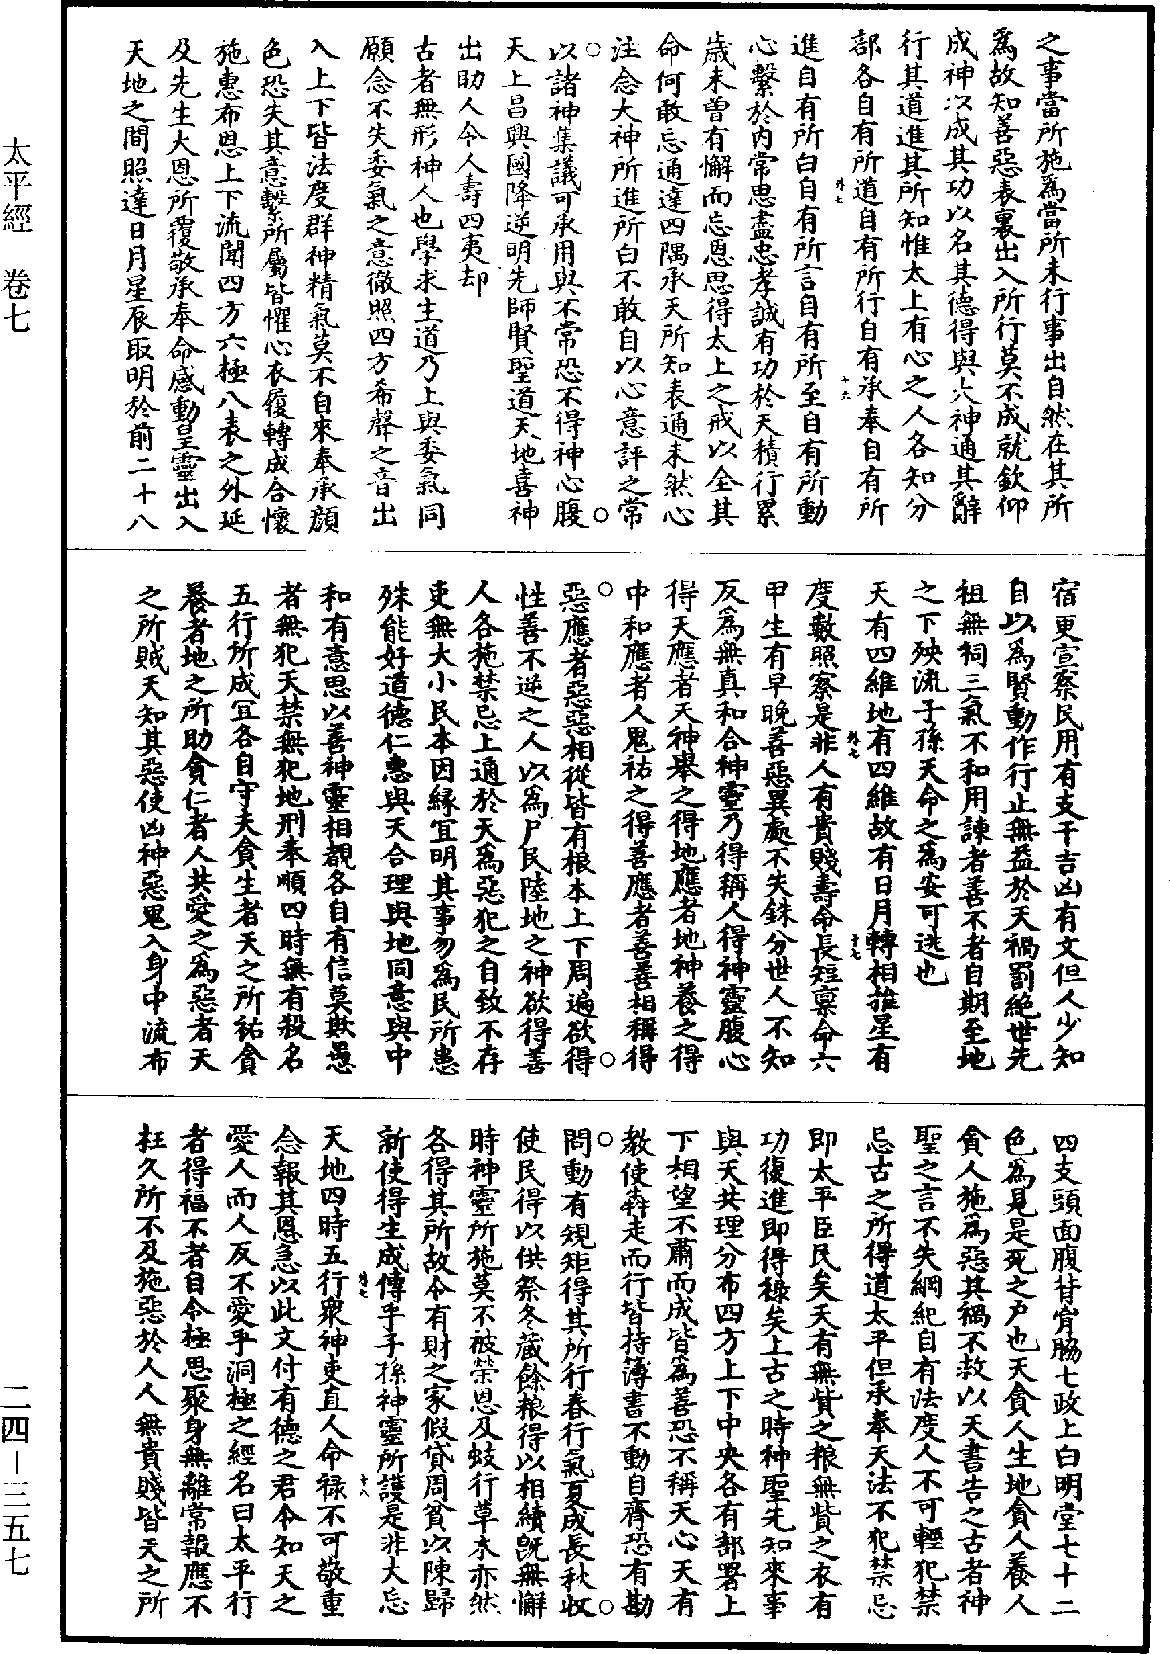 太平經　卷七
二四－三五七
之事當所施爲當所未行事出自然在其所
爲故知善惡表裏出入所行莫不成就欽仰
成神以成其功以名其德得與大神通其辭
行其道進其所知惟太上有心之人各知分
部各自有所道自有所行自有承奉自有所
外七
十六
進自有所白自有所言自有所至自有所動
心繫於內常思盡忠孝誠有功於天積行累
歲未曾有懈而忘恩思得太上之戒以全其
命何敢忘通達四隅承天所知表通未然心
注念大神所進所白不敢自以心意評之常
○　○
以諸神集議可承用與不常恐不得神心腹
天上昌興國降逆明先師賢聖道天地喜神
出助人令人壽四夷却
古者無形神人也學求生道乃上與委氣同
願念不失委氣之意微照四方希聲之音出
入上下皆法度群神精氣莫不自來奉承顏
色恐失其意繫所屬皆懼心衣履轉成合懷
施惠布恩上下流聞四方六極八表之外延
及先生大恩所覆敬承奉命感動皇靈出入
天地之間照達日月星辰取明於前二十八
宿更宣察民用有支干吉凶有文但人少知
自以爲賢動作行止無益於天禍罰絕世先
祖無祠三氣不和用諫者善不者自期至地
之下殃流子孫天命之爲安可逃也
天有四維地有四維故有日月轉相推星有
外七
十七
度數照察是非人有貴賤壽命長短禀命六
甲生有早晚善惡異處不失銖分世人不知
反爲無真和合神靈乃得稱人得神靈腹心
得天應者天神舉之得地應者地神養之得
中和應者人鬼祐之得善應者善善相稱得
○　○
惡應者惡惡相從皆有根本上下周遍欲得
性善不逆之人以爲尸民陸地之神欲得善
人各施禁忌上通於天爲惡犯之自致不存
吏無大小民本因緣宜明其事勿爲民所患
殊能好道德仁惠與天合理與地同意與中
和有意思以善神靈相覩各自有信莫欺愚
者無犯天禁無犯地刑奉順四時無有殺名
五行所成宜各自守夫貪生者天之所祐貪
養者地之所助貪仁者人共愛之爲惡者天
之所賊天知其惡使凶神惡鬼入身中流布
四支頭面腹背脅脇七政上白明堂七十二
色爲見是死之尸也天貪人生地貪人養人
貪人施爲惡其禍不救以天書告之古者神
聖之言不失綱紀自有法度人不可輕犯禁
忌古之所得道太平但承奉天法不犯禁忌
即太平臣民矣天有無貲之粮無貲之衣有
功復進即得祿矣上古之時神聖先知來事
與天共理分布四方上下中央各有部署上
下相望不肅而成皆爲善恐不稱天心天有
教使犇走而行皆持簿書不動自齊恐有勘
○　○
問動有規矩得其所行春行氣夏成長秋收
使民得以供祭冬藏餘粮得以相續既無懈
時神靈所施莫不被榮恩及蚑行草木亦然
各得其所故令有財之家假貸周貧以陳歸
新使得生成傳乎子孫神靈所護是非大忌
外七
十八
天地四時五行衆神吏直人命祿不可敬重
念報其恩急以此文付有德之君令知天之
愛人而人反不愛乎洞極之經名曰太平行
者得福不者自令極思聚身無離常報應不
枉久所不及施惡於人人無貴賤皆天之所